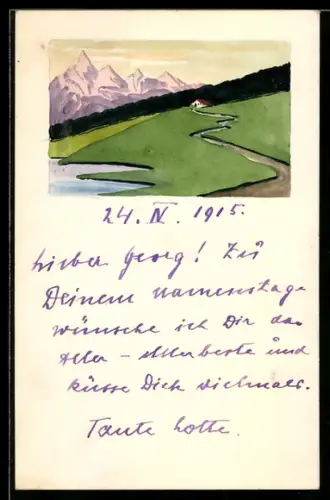 24. IV. 1915.
Lieber Georg! Zu
Deinem Namenstage
wünsche ich Dir das
Aller-Allerbeste und
küsse Dich vielmals.
Tante Lotte.